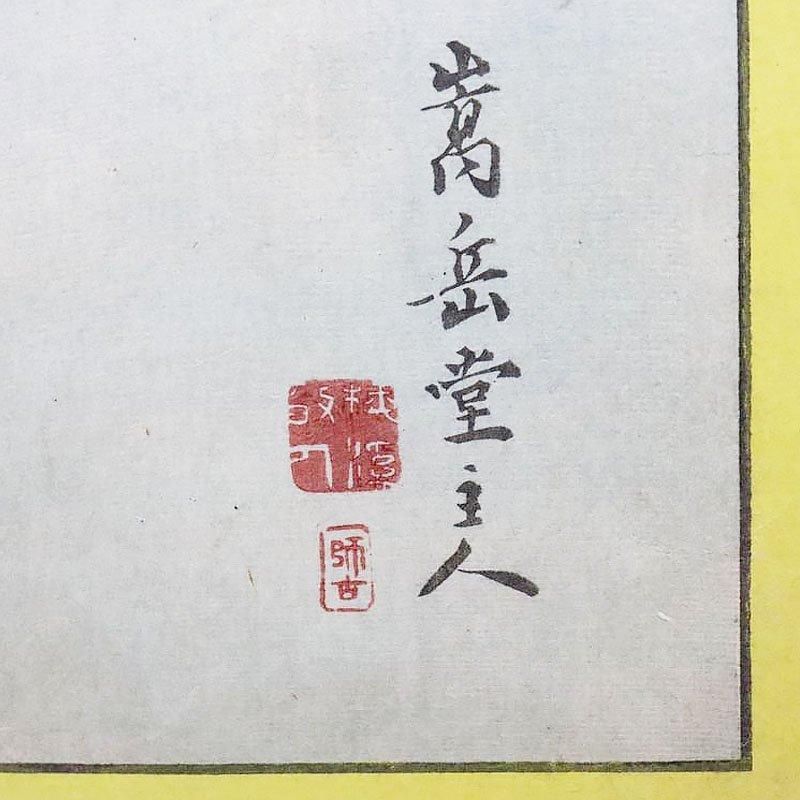 嵩岳堂主人
師古